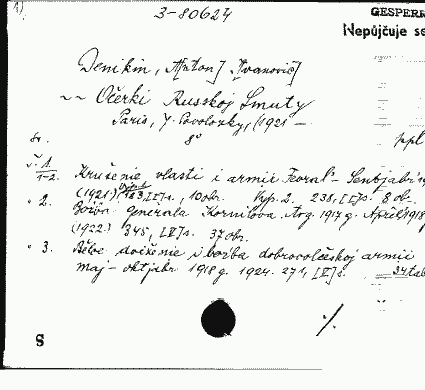 3-80624
GESPERR
Nepůjčuje se
Denikin, A[nton] Ivanovič]
~~ Očerki Russkoj Smuty
Paris, J. Povolozky, (1921 —
Sv. 8° ppl
1-2. Krušenie vlasti i armii Fevral'- Sentjabr'
(1921) 183, [I]s., 10 obr. Vyp. 2. 238, [I]s. 8 ob.
" 2. Bor'ba Generala Kornilova. Avg. 1917 g. April 1918
(1922) 345, [II]s. 37 obr.
" 3. Běloe dviženie i bor'ba dobrovolčeskoj armii
Maj - oktjabr 1918 g. 1924. 271, [I]s. 34 tab
S